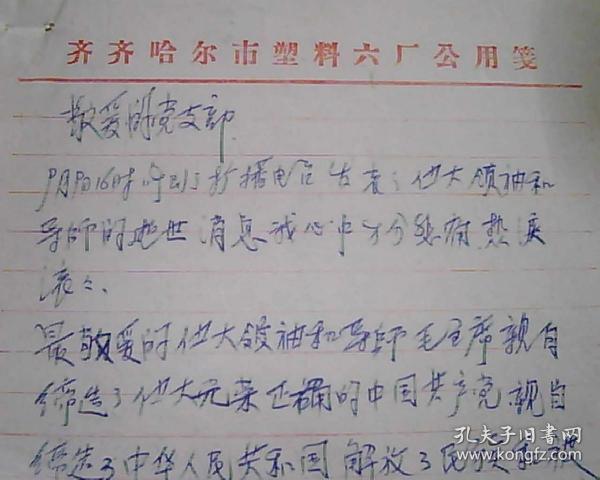 齐齐哈尔市塑料六厂公用笺
敬爱的党支部
9月9日16时 听到广播电台发表了伟大领袖和
导师的逝世消息我心中万分悲痛热泪
滚々、
最敬爱的伟大领袖和导师毛主席亲自
缔造了伟大光荣正确的中国共产党亲自
缔造了中华人民共和国解放了民族和
孔夫子旧书网
www.kongfz.com